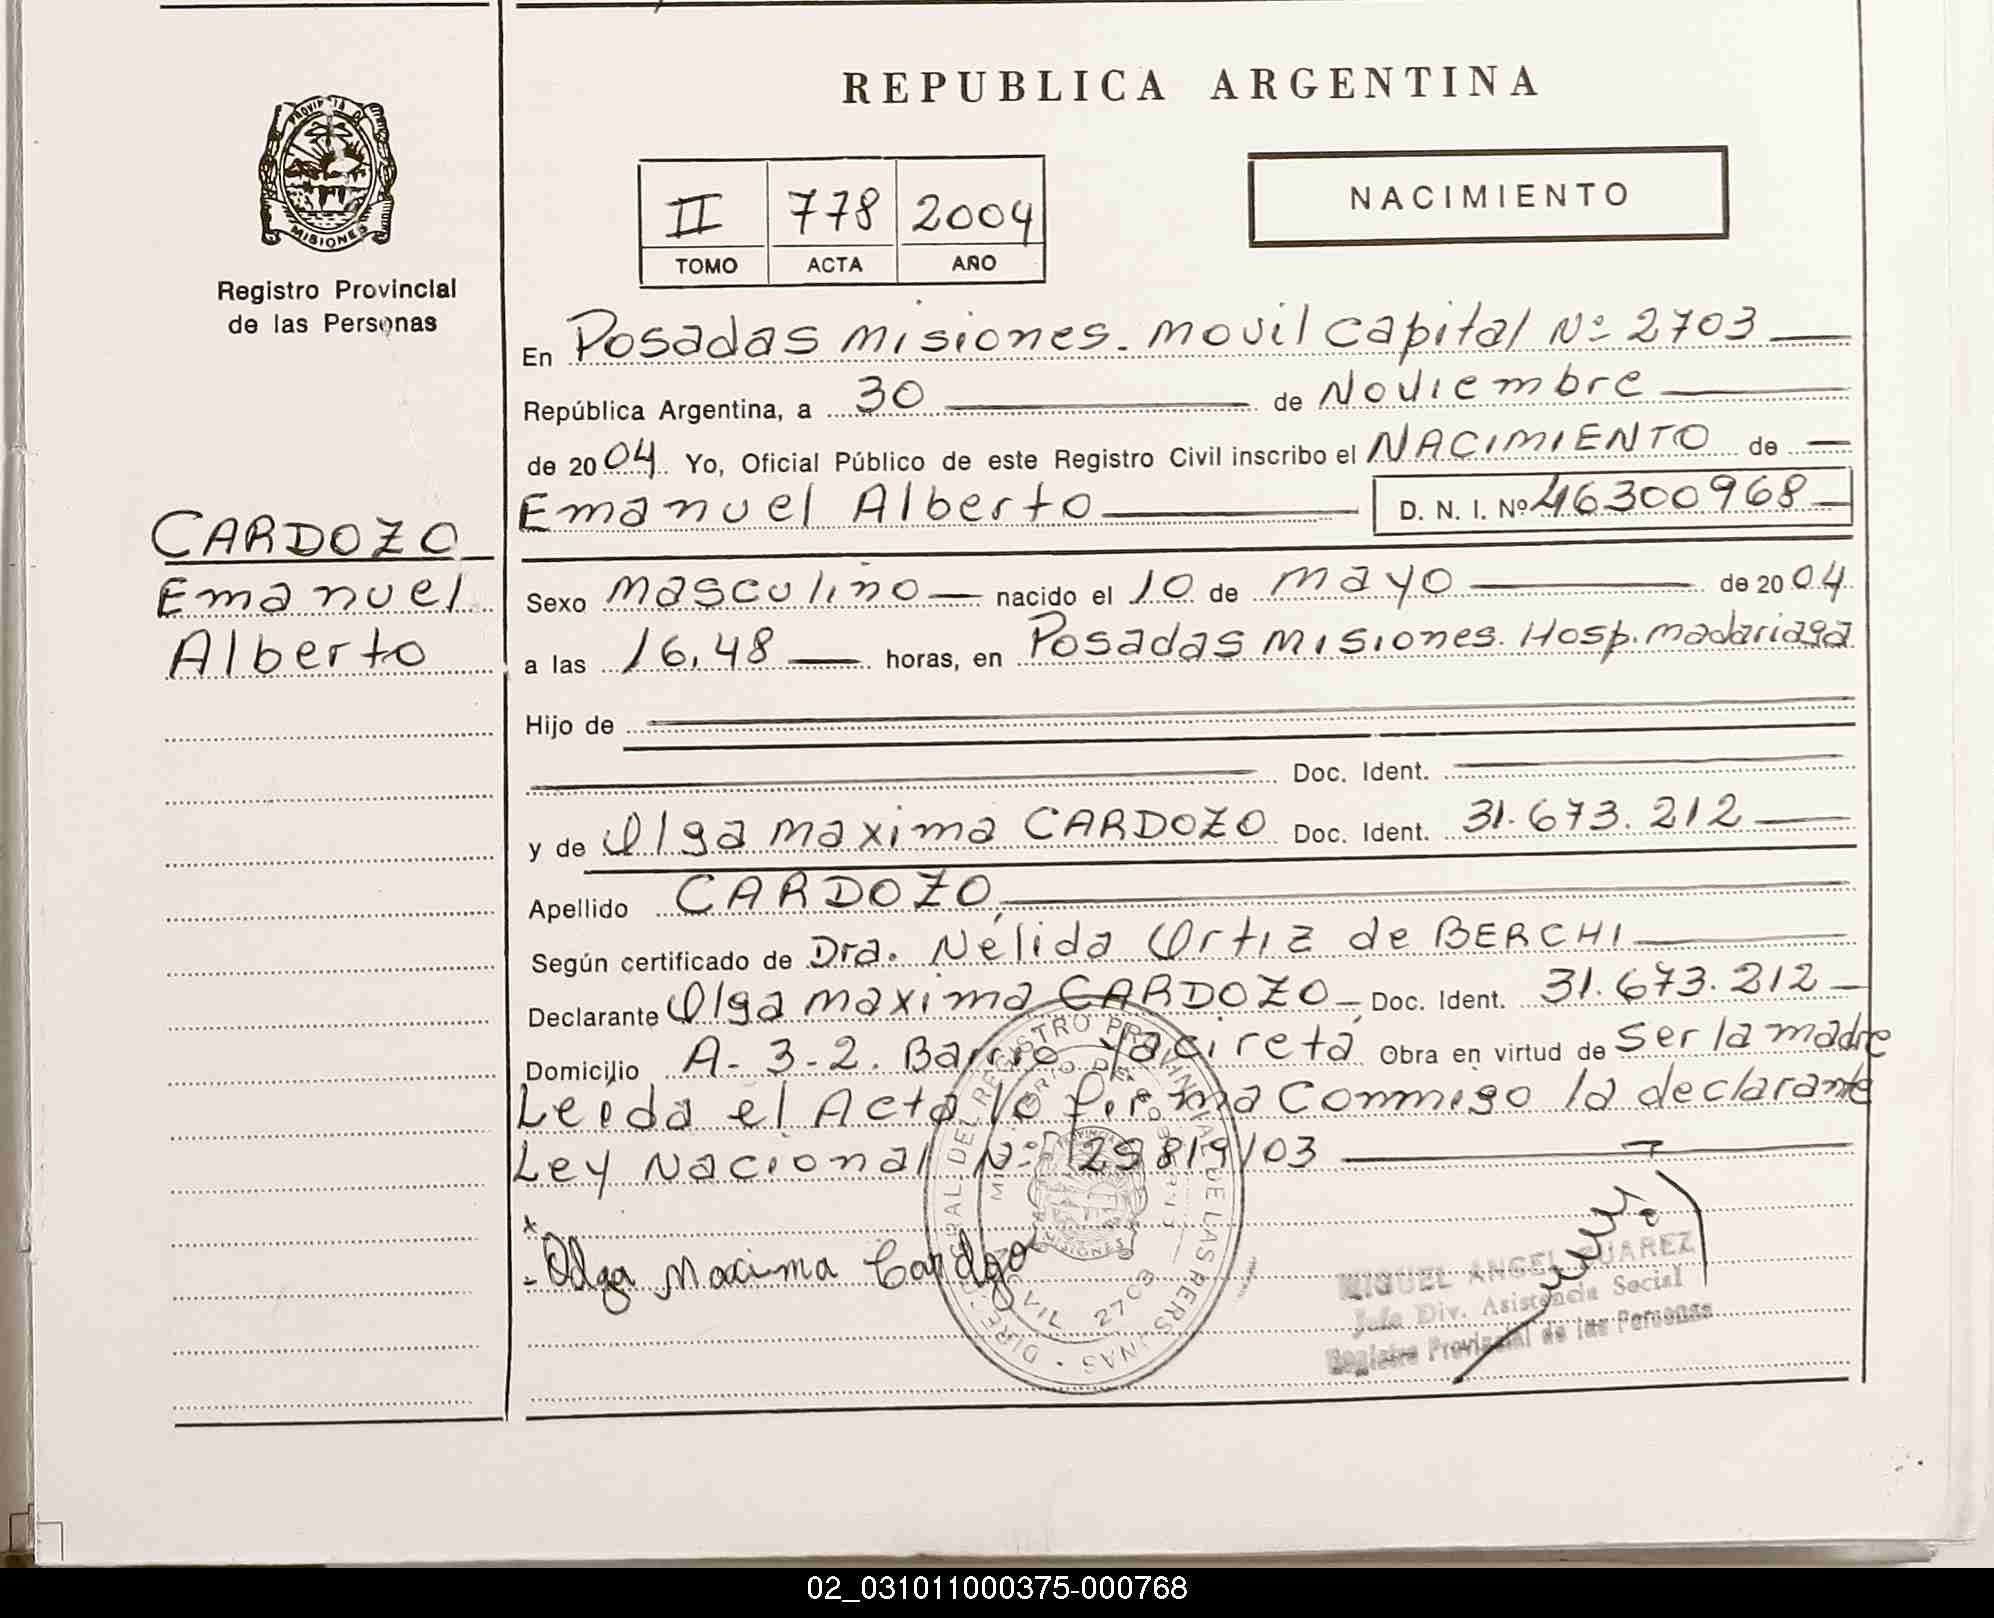 REPUBLICA ARGENTINA
PROVINCIA DE
MISIONES
Registro Provincial
de las Personas
II 778 2004
TOMO ACTA AÑO
NACIMIENTO
En Posadas Misiones. Movil Capital Nº 2703
República Argentina, a 30 de Noviembre
de 2004 Yo, Oficial Público de este Registro Civil inscribo el NACIMIENTO de
Emanuel Alberto D. N. I. Nº 46300968
CARDOZO
Emanuel
Alberto
Sexo masculino nacido el 10 de mayo de 2004
a las 16,48 horas, en Posadas Misiones. Hosp. Madariaga
Hijo de
Doc. Ident.
y de Olga Maxima CARDOZO Doc. Ident. 31.673.212
Apellido CARDOZO,
Según certificado de Dra. Nélida Ortiz de BERCHI
Declarante Olga Maxima CARDOZO Doc. Ident. 31.673.212
Domicilio A-3-2. Barrio Yacireta Obra en virtud de Ser la madre
Leida el Acta lo firma Conmigo la declarante
Ley Nacional Nº 25819/03
x
- Olga Maxima Cardozo
DIRE GRAL DEL REGISTRO PROVINCIAL DE LAS PERSONAS
2703
MISIONES
MIGUEL ANGEL SUAREZ
Jefe Div. Asistencia Social
Registro Provincial de las Personas
02_031011000375-000768